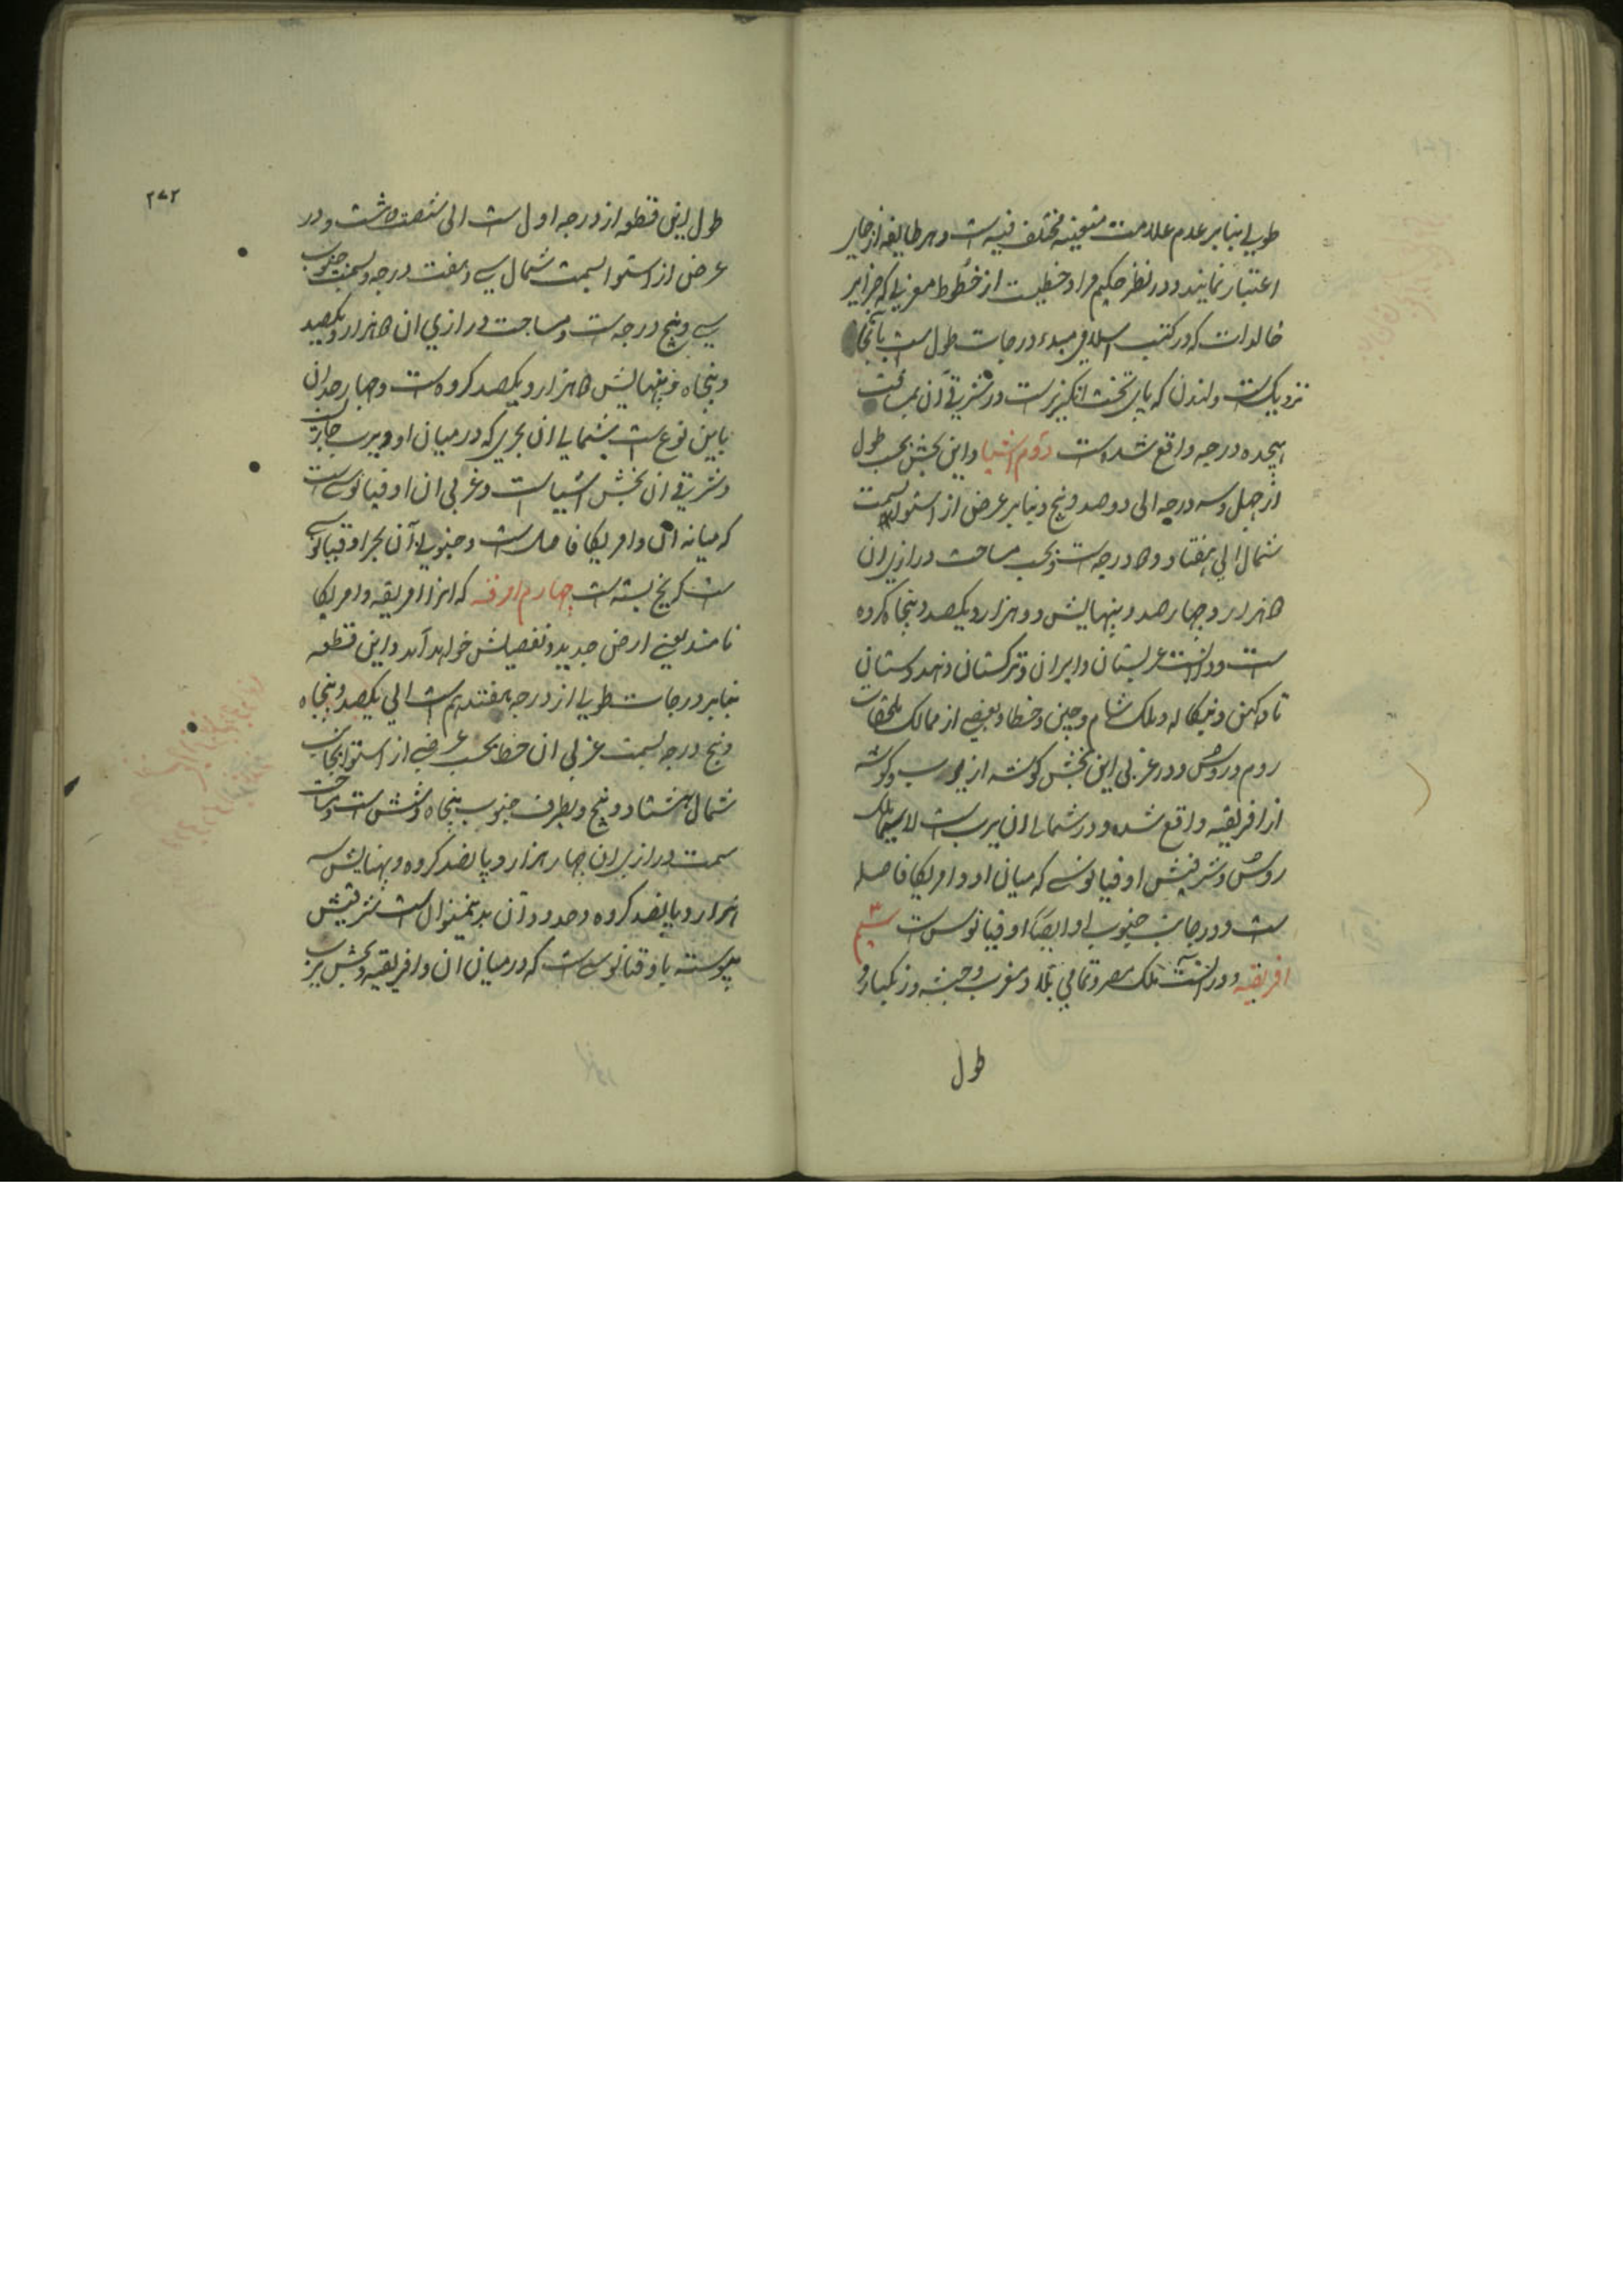 طولی بنابر عدم علامت متعینه مختلف فیه است و هر طایفه از جایی
اعتبار نمایند و در نظر حکیم مراد خطیست از خطوط مغربی که جزایر
خالدات که در کتب اسلامی مبدء درجات طول است بآنجا
نزدیک است و لندن که پای تخت انگریز است در شرقی آن بمسافت
هیجده درجه واقع شده است دوم اشیا و این بخش بحسب طول
از چهل و سه درجه الی دوصد و پنج و بنابر عرض از استوا بسمت
شمال الی هفتاد و درجه است و بحسب مساحت درازی آن
هزار و چهارصد و پنهایش دو هزار و یکصد و پنجاه کروه
ست و در آنست عربستان و ایران و ترکستان و هندوستان
تا دکهن و بنگاله و ملک شام و چین و خطا و بعضی از ممالک ملحقات
روم و روس و در غربی این بخش گوشه از یورپ و گوشه
از افریقیه واقع شده و در شمالی آن یرپ است لاسیما ملک
روس و شرقیش اوقیانوسی که میان او و امریکا فاصله
ست و در جانب جنوبی او ایضاً اوقیانوس ست سیم
افریقیه و در آنست ملک مصر و تمامی بلاد مغرب و حبشه و زنگبار و
طول
۲۷۲
طول این قطعه از درجه اول است الی شصت و هشت و در
عرض از استوا بسمت شمال سی و هفت درجه و بسمت جنوب
سی و پنج درجه است و مساحت درازی آن هزار و یکصد
و پنجاه و پنهایش هزار و یکصد کروه ست و چهار حد آن
باین نوع است شمالی آن بحری که در میان او و یرپ حایل
و شرقی آن بخش اشیاست و غربی آن اوقیانوسی است
که میانه آن و امریکا فاصل است و جنوبی آن بحر اوقیانوسی
ست که یخ بسته ست چهارم اوفه که آنرا امریقه و امریکا
نامند یعنی ارض جدید و تفصیلش خواهد آمد و این قطعه
بنابر درجات طولی از درجه هفتدهم است الی یکصد و پنجاه
و پنج درجه بسمت غربی آن خط بحسب عرضی از استوا بجانب
شمال هشتاد و پنج و بطرف جنوب پنجاه و شش است و مساحت
سمت درازی آن چهار هزار و پانصد کروه و پهنایش سه
هزار و پانصد کروه و حدود آن بدینمنوال است شرقیش
پیوسته باوقیانوسی است که در میان آن و افریقیه و بخش یرپ